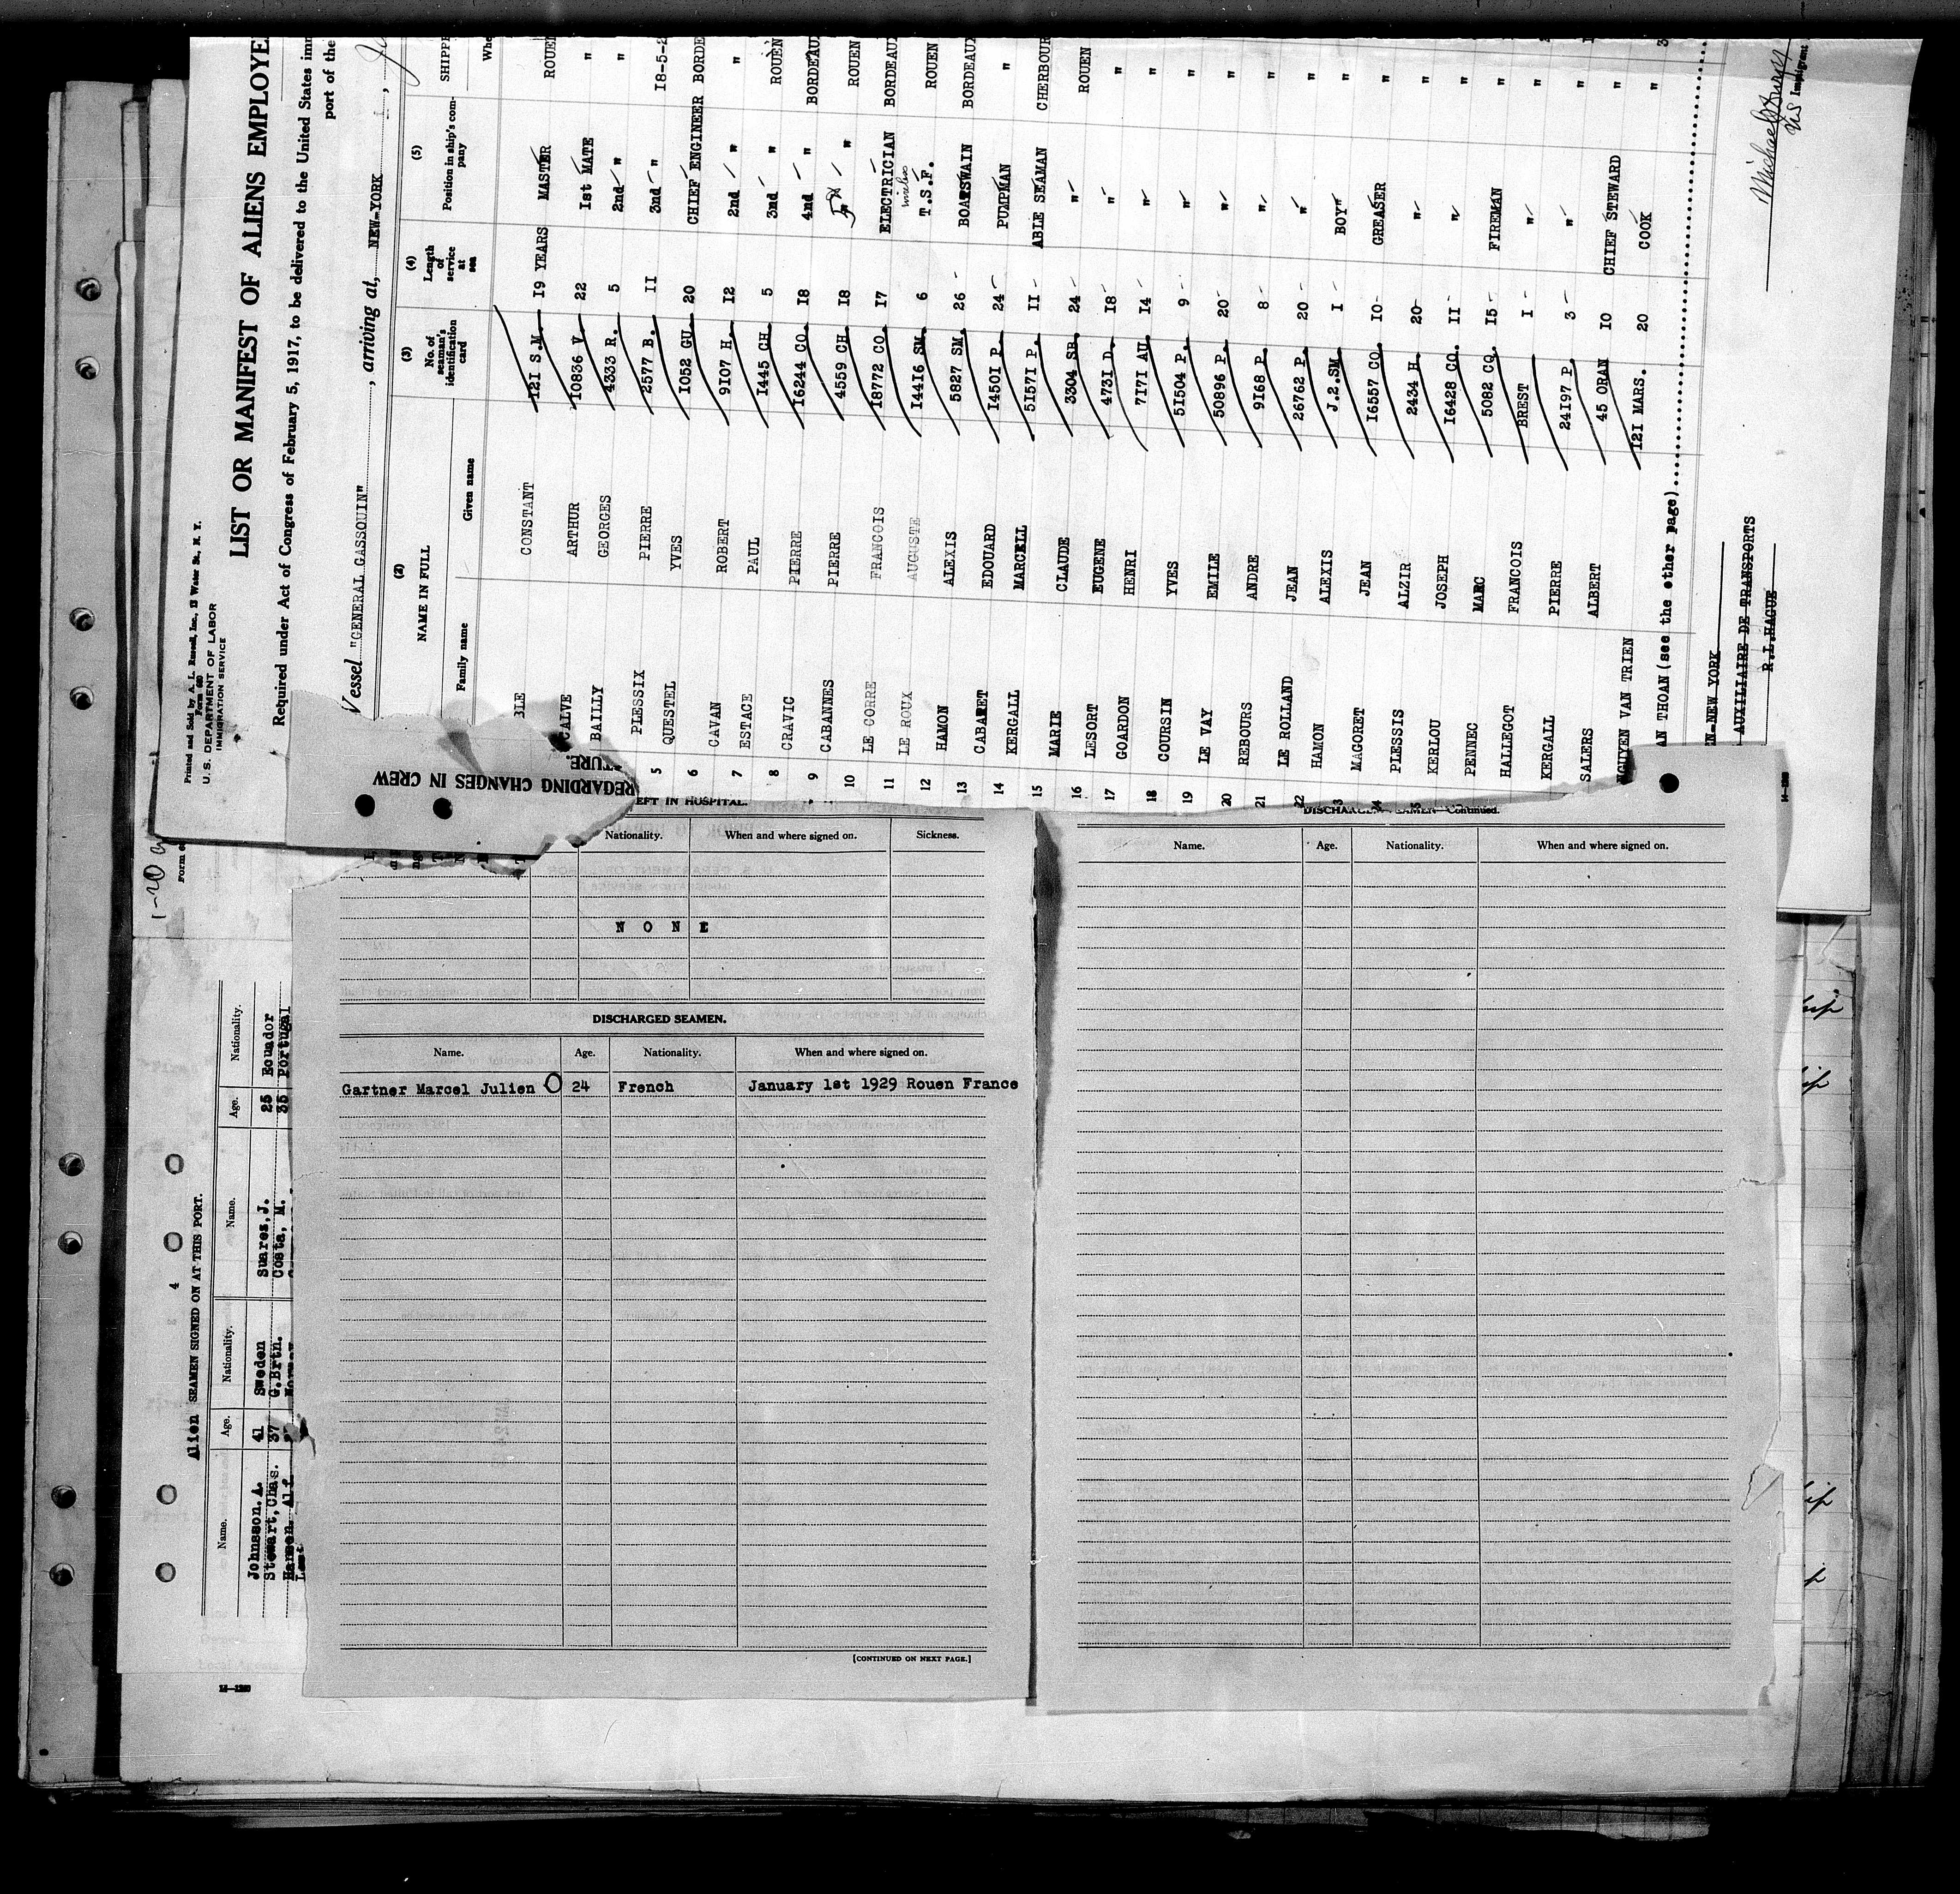 Printed and Sold by A. L. Russell, Inc., 12 Water St., N. Y.
Form 680
U. S. DEPARTMENT OF LABOR
IMMIGRATION SERVICE
LIST OR MANIFEST OF ALIENS EMPLOYE
Required under Act of Congress of February 5, 1917, to be delivered to the United States imm
port of the
Vessel "GENERAL GASSOUIN", arriving at, NEW-YORK
(2) (3) (4) (5)
NAME IN FULL No. of seaman's identification card Length of service at sea Position in ship's company SHIPPE
Family name Given name Whe
BLE CONSTANT 121 S.M. 19 YEARS MASTER ROUEN
CALVE ARTHUR 10836 V. 22 1st MATE "
BAILLY GEORGES 4333 R. 5 2nd " "
PLESSIX PIERRE 2577 B. 11 3nd " 18-5-2
5 QUESTEL YVES 1052 GU. 20 CHIEF ENGINEER BORDE
6 CAVAN ROBERT 9107 H. 12 2nd " "
7 ESTACE PAUL 1445 CH. 5 3nd " ROUEN
8 CRAVIC PIERRE 16244 CO. 18 4nd " BORDEAU
9 CABANNES PIERRE 4559 CH. 18 " ROUEN
10 LE CORRE FRANCOIS 18772 CO. 17 ELECTRICIAN BORDEAUX
11 LE ROUX AUGUSTE 14416 SM. 6 wireless T.S.F. ROUEN
12 HAMON ALEXIS 5827 SM. 26 BOATSWAIN BORDEAUX
13 CABARET EDOUARD 14501 P. 24 PUMPMAN "
14 KERGALL MARCELL 51571 P. 11 ABLE SEAMAN CHERBOUR
15 MARIE CLAUDE 3304 SB. 24 " ROUEN
16 LESORT EUGENE 4731 D. 18 " "
17 GOARDON HENRI 7171 AU. 14 " "
18 COURSIN YVES 51504 P. 9 " "
19 LE VAY EMILE 50896 P. 20 " "
20 REBOURS ANDRE 9168 P. 8 " "
21 LE ROLLAND JEAN 26762 P. 20 " "
22 HAMON ALEXIS J.2.SM. 1 BOY" "
MAGORET JEAN 16557 CO. 10 GREASER "
PLESSIS ALZIR 2434 H. 20 " "
KERLOU JOSEPH 16428 CO. 11 " "
PENNEC MARC 5082 CO. 15 FIREMAN "
HALLEGOT FRANCOIS BREST 1 " "
KERGALL PIERRE 24197 P. 3 " "
SALERS ALBERT 45 ORAN 10 CHIEF STEWARD "
NGUYEN VAN TRIEN 121 MARS. 20 COOK "
AN THOAN (see the other page)
EN-NEW YORK
AUXILIAIRE DE TRANSPORTS
R.L.HAGUE
Immigrant
14-1259
REGARDING CHANGES IN CREW
TURE.
EFT IN HOSPITAL.
Nationality. When and where signed on. Sickness.
N O N E
DISCHARGED SEAMEN.
Name. Age. Nationality. When and where signed on.
Gartner Marcel Julien 24 French January 1st 1929 Rouen France
[CONTINUED ON NEXT PAGE.]
DISCHARGED SEAMEN—Continued.
Name. Age. Nationality. When and where signed on.
4
Alien SEAMEN SIGNED ON AT THIS PORT.
Name. Age. Nationality. Name. Age. Nationality.
Johnsson, A. 41 Sweden Suares, J. 25 Ecuador
Stewart, Chas. 37 G.Brtn. Costa, M. 35 Portugal
Hansen, Alf